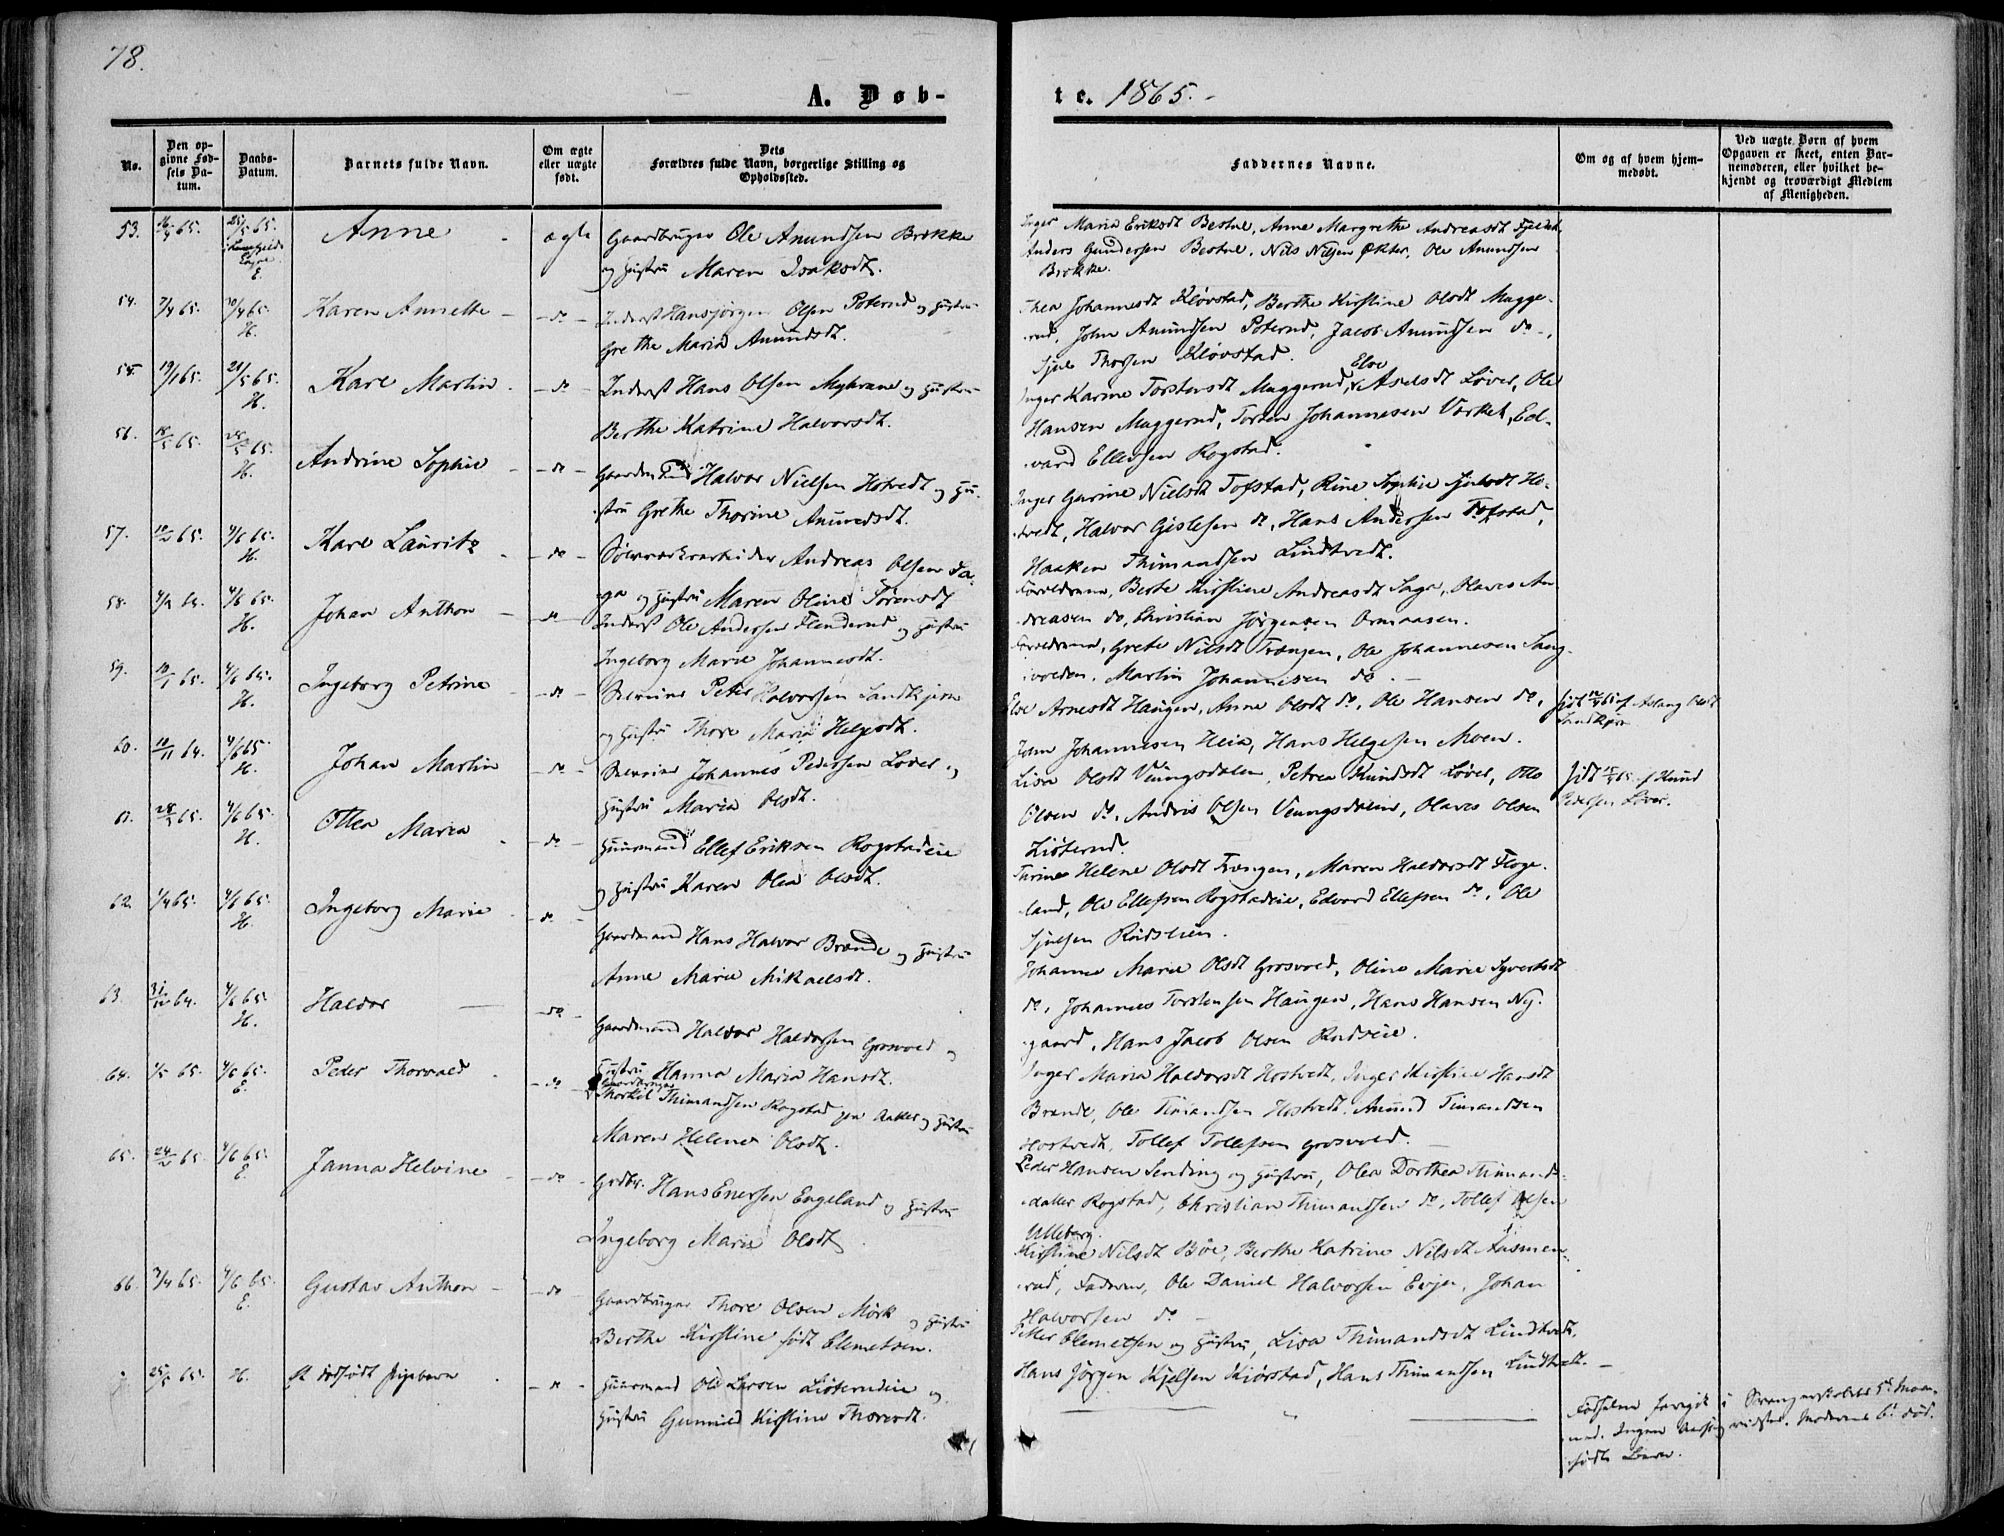 78.
A. Døb-
te. 1865.-
No.
Den op-
givne Fød-
sels Da-
tum.
Daabs-
Datum.
Barnets fulde Navn.
Om ægte
eller uægte
født.
Dets
Forældres fulde Navn, borgerlige Stilling og
Opholdssted.
Faddernes Navne.
Om og af hvem hjem-
medøbt.
Ved uægte Børn af hvem
Opgaven er skeet, enten Bar-
nemoderen, eller hvilket be-
kjendt og troværdigt Medlem
af Menigheden.
53. 65. 25/5 65. Anne - ægte Gaardbruger Ole Amundsen Brekke
og Hustru Maren Isaksdt.
Inger Maria Eriksdt Bestul, Anne Margrethe Andreasdt
Anders Gundersen Bestul, Nils Nilsen Økter, Ole Amundsen
Brekke.
54. 7/4 65. 65. H. Karen Annette - do - Inderst Hansjørgen Olsen Poterud og Hustru
Grethe Maria Amundsdt.
Thea Johannesdt Kløvstad, Berthe Kirstine Olsdt Mugge-
rud, John Amundsen Poterud, Jacob Amundsen do -,
Sjul Thorsen Kløvstad.
55. 19/1 65. 21/5 65. H. Karl Martin - do - Inderst Hans Olsen Myhrane og Hustru
Berthe Katrine Halvorsdt.
Inger Karine Torstensdt Muggerud, Else Aselsdt Løver, Ole
Hansen Muggerud, Torsten Johannesen Varket, Ed-
vard Ellefsen Rogstad.
56. 18/5 65. 25/5 65. H. Andrine Sophie - do - Gaardm Halvor Nielsen Hotvedt og Hu-
stru Grethe Thorine Amundsdt.
Inger Gurine Nielsdt Tofstad, Rine Sophie Sjulsdt Ho-
tvedt, Halvor Gislesen do, Hans Andersen Tofstad,
Haaken Thimandsen Lindtvedt.
57. 65. 4/6 65. H. Karl Lauritz - do - Sølvverksarbeider Andreas Olsen Sa-
ga og Hustru Maren Oline Sørensdt
Forældrene, Berte Kirstine Andreasdt Saga, Olaves An-
dreasen do, Christian Jørgensen Ormaasen.
58. 64. 4/6 65. H. Johan Anthon - do - Inderst Ole Andersen Flenderud og Hustru
Ingeborg Marie Johannesdt.
Forældrene, Grete Nilsdt Trængen, Ole Johannesen Lang-
volden, Martin Johannesen do. -
59. 65. 4/6 65. H. Ingeborg Petrine - do - Peter Halvorsen Sandkjern
og Hustru Thore Maria Helgesdt.
Else Arnesdt Haugen, Anne Olsdt do, Ole Hansen do,
John Johannesen Heia, Hans Helgesen Moen.
Aslaug Olsdt
Sandkjern
60. 64. 4/6 65. H. Johan Martin - do - Johannes Pedersen Løver og
Hustru Maria Olsdt.
Lisa Olsdt Veungsdalen, Petrea Knudsdt Løver, Otto
Olsen do, Andris Olsen Veungsdalen, Olaves Olsen
Liøterud.
Knud
Pedersen Løver.
61. 65. 4/6 65. H. Ottea Maria - do - Huusmand Ellef Eriksen Rogstadeie
og Hustru Karen Olea Olsdt.
Turine Helene Olsdt Trængen, Maren Haldorsdt Floge-
land, Ole Ellefsen Rogstadeie, Edvard Ellefsen do, Ole
Sjulsen
62. 1/4 65. 4/6 65. H. Ingeborg Marie - do - Gaardmand Hans Halvor Brænde og Hustru
Anne Marie Mikaelsdt.
Johanne Marie Olsdt Grosvold, Oline Marie Syvertsdt
do, Johannes Torstensen Haugen, Hans Hansen Ny-
gaard, Hans Jacob Olsen
63. 64. 4/6 65. H. Haldor - do - Gaardmand Haldor Haldorsen Grosvold og
Hustru Hanna Maria Hansdt.
Inger Maria Haldorsdt Hostvedt, Inger Kirstine Hansdt
Brænde, Ole Timandsen Hostvedt, Amund Timandsen
Hostvedt, Tollef Tollefsen Grosvold. -
64. 65. 4/6 65. E. Peder Thorvald - do - Gaardbruger
Thorkel Thimandsen Rogstad og Hustru
Maren Helene Olsdt.
Peder Hansen Sending og Hustru, Olea Dorthea Thimands-
datter Rogstad, Christian Thimandsen do, Tollef Olsen
Ulleberg.
65. 65. 4/6 65. E. Janna Helvine - do - Grdbr. Hans Enersen Engeland og Hustru
Ingeborg Marie Olsdt
Kirstine Nilsdt Bøe, Berthe Katrine Nilsdt Aasmun-
rud, Faderen, Ole Daniel Halvorsen Evju, Johan
Halvorsen do -
66. 3/4 65. 4/6 65. E. Gustav Anthon - do - Gaardbruger Thore Olsen Mørk og Hustru
Berthe Kirstine født Clemetsen.
Petter Clemetsen og Hustru, Lisa Thimandsdt Lindtvedt,
Hans Jørgen Kjelsen Kiørstad, Hans Thimandsen Lindtvedt. -
65. H. Et dødfødt Pigebarn - do - Huusmand Ole Larsen Liøterudeie og
Hustru Gunnild Kirstine Thoresdt.
Fødselen foregik i Svangerskabets 5te Maa-
ned. Ingen
fødte Barn.